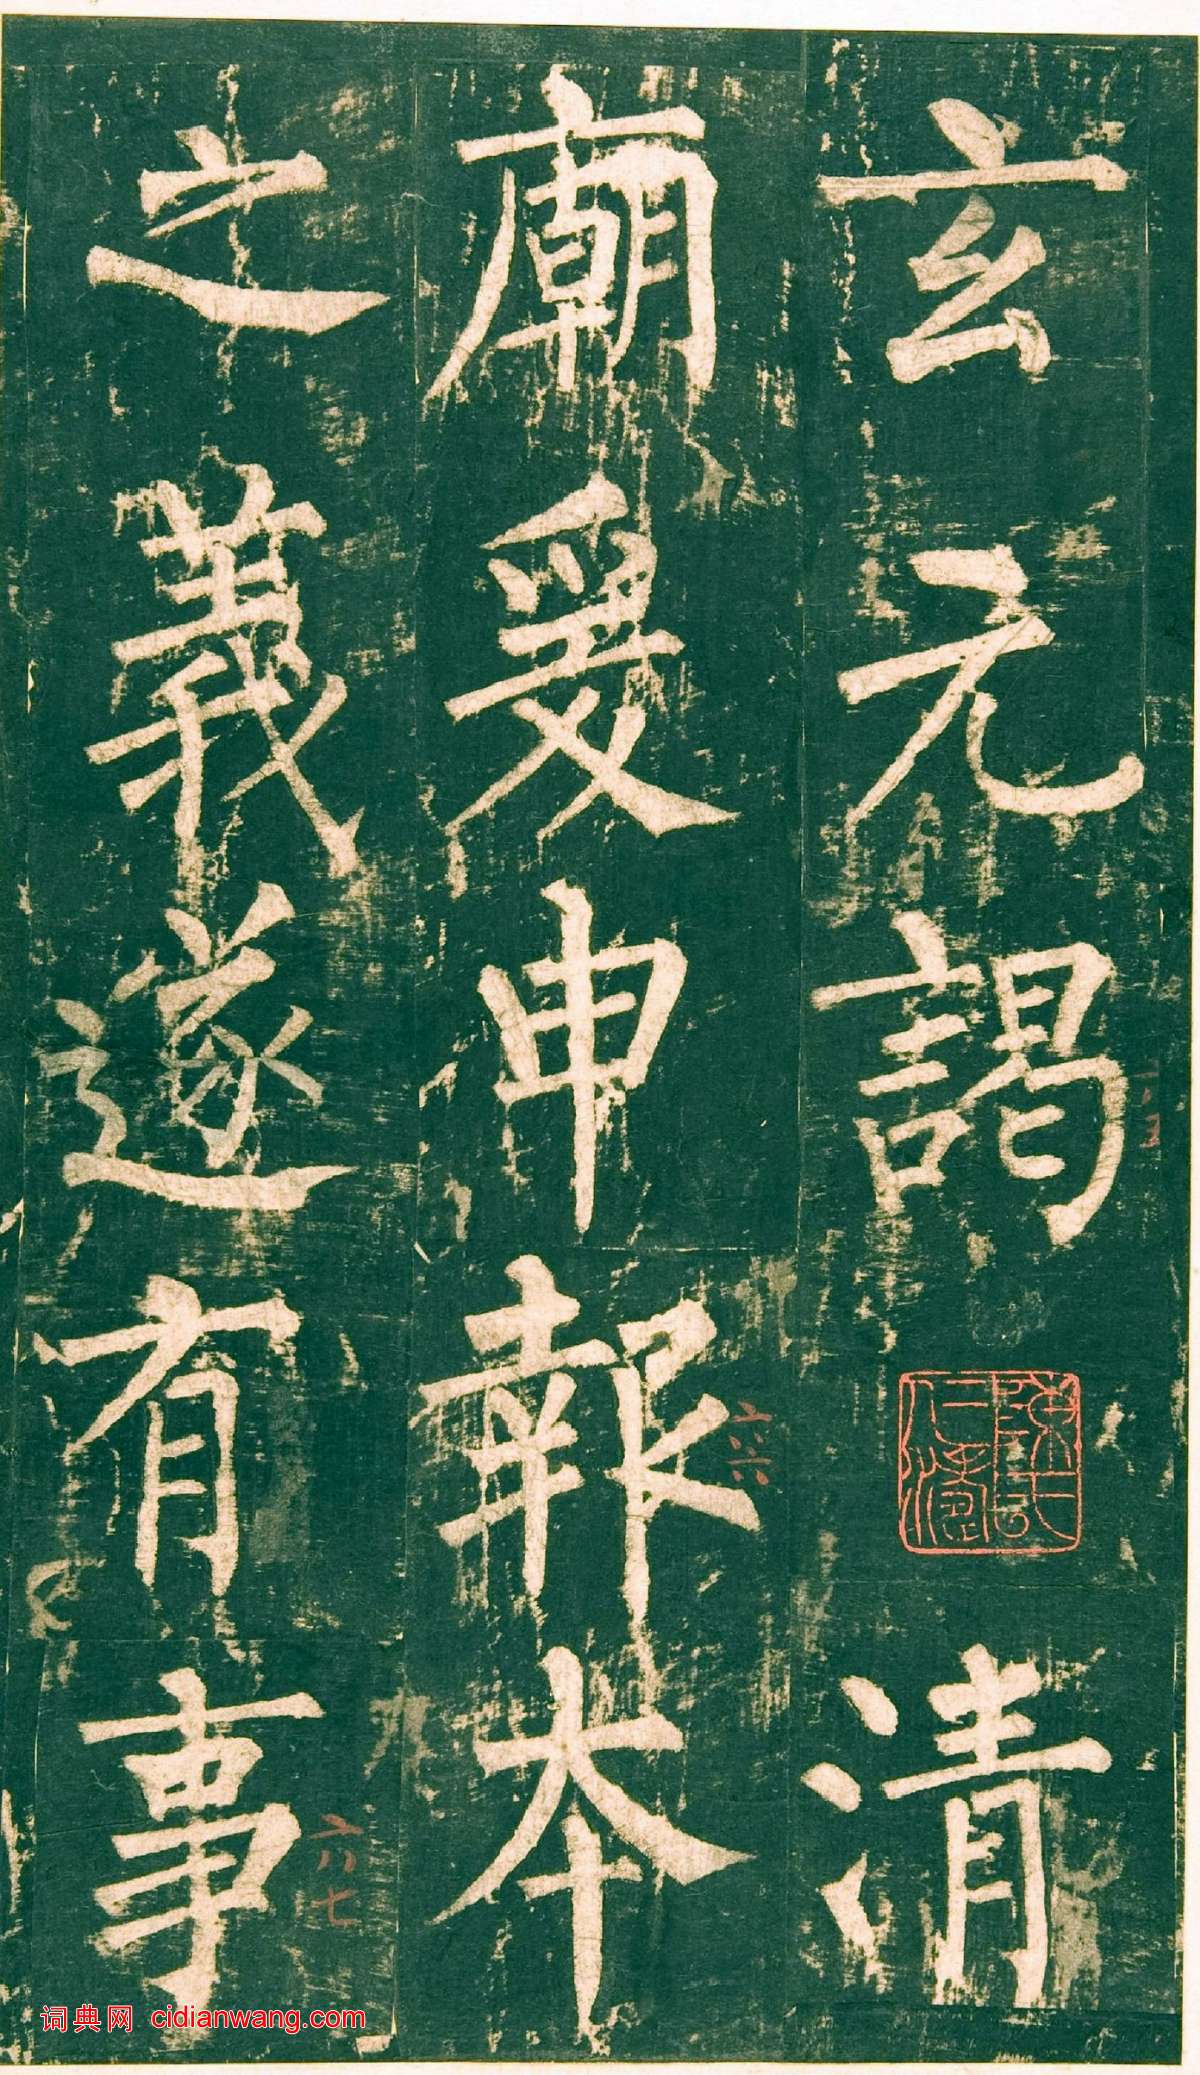 玄元謁清
廟爰申報本
之義遂有事
六六
六七
词典网 cidianwang.com